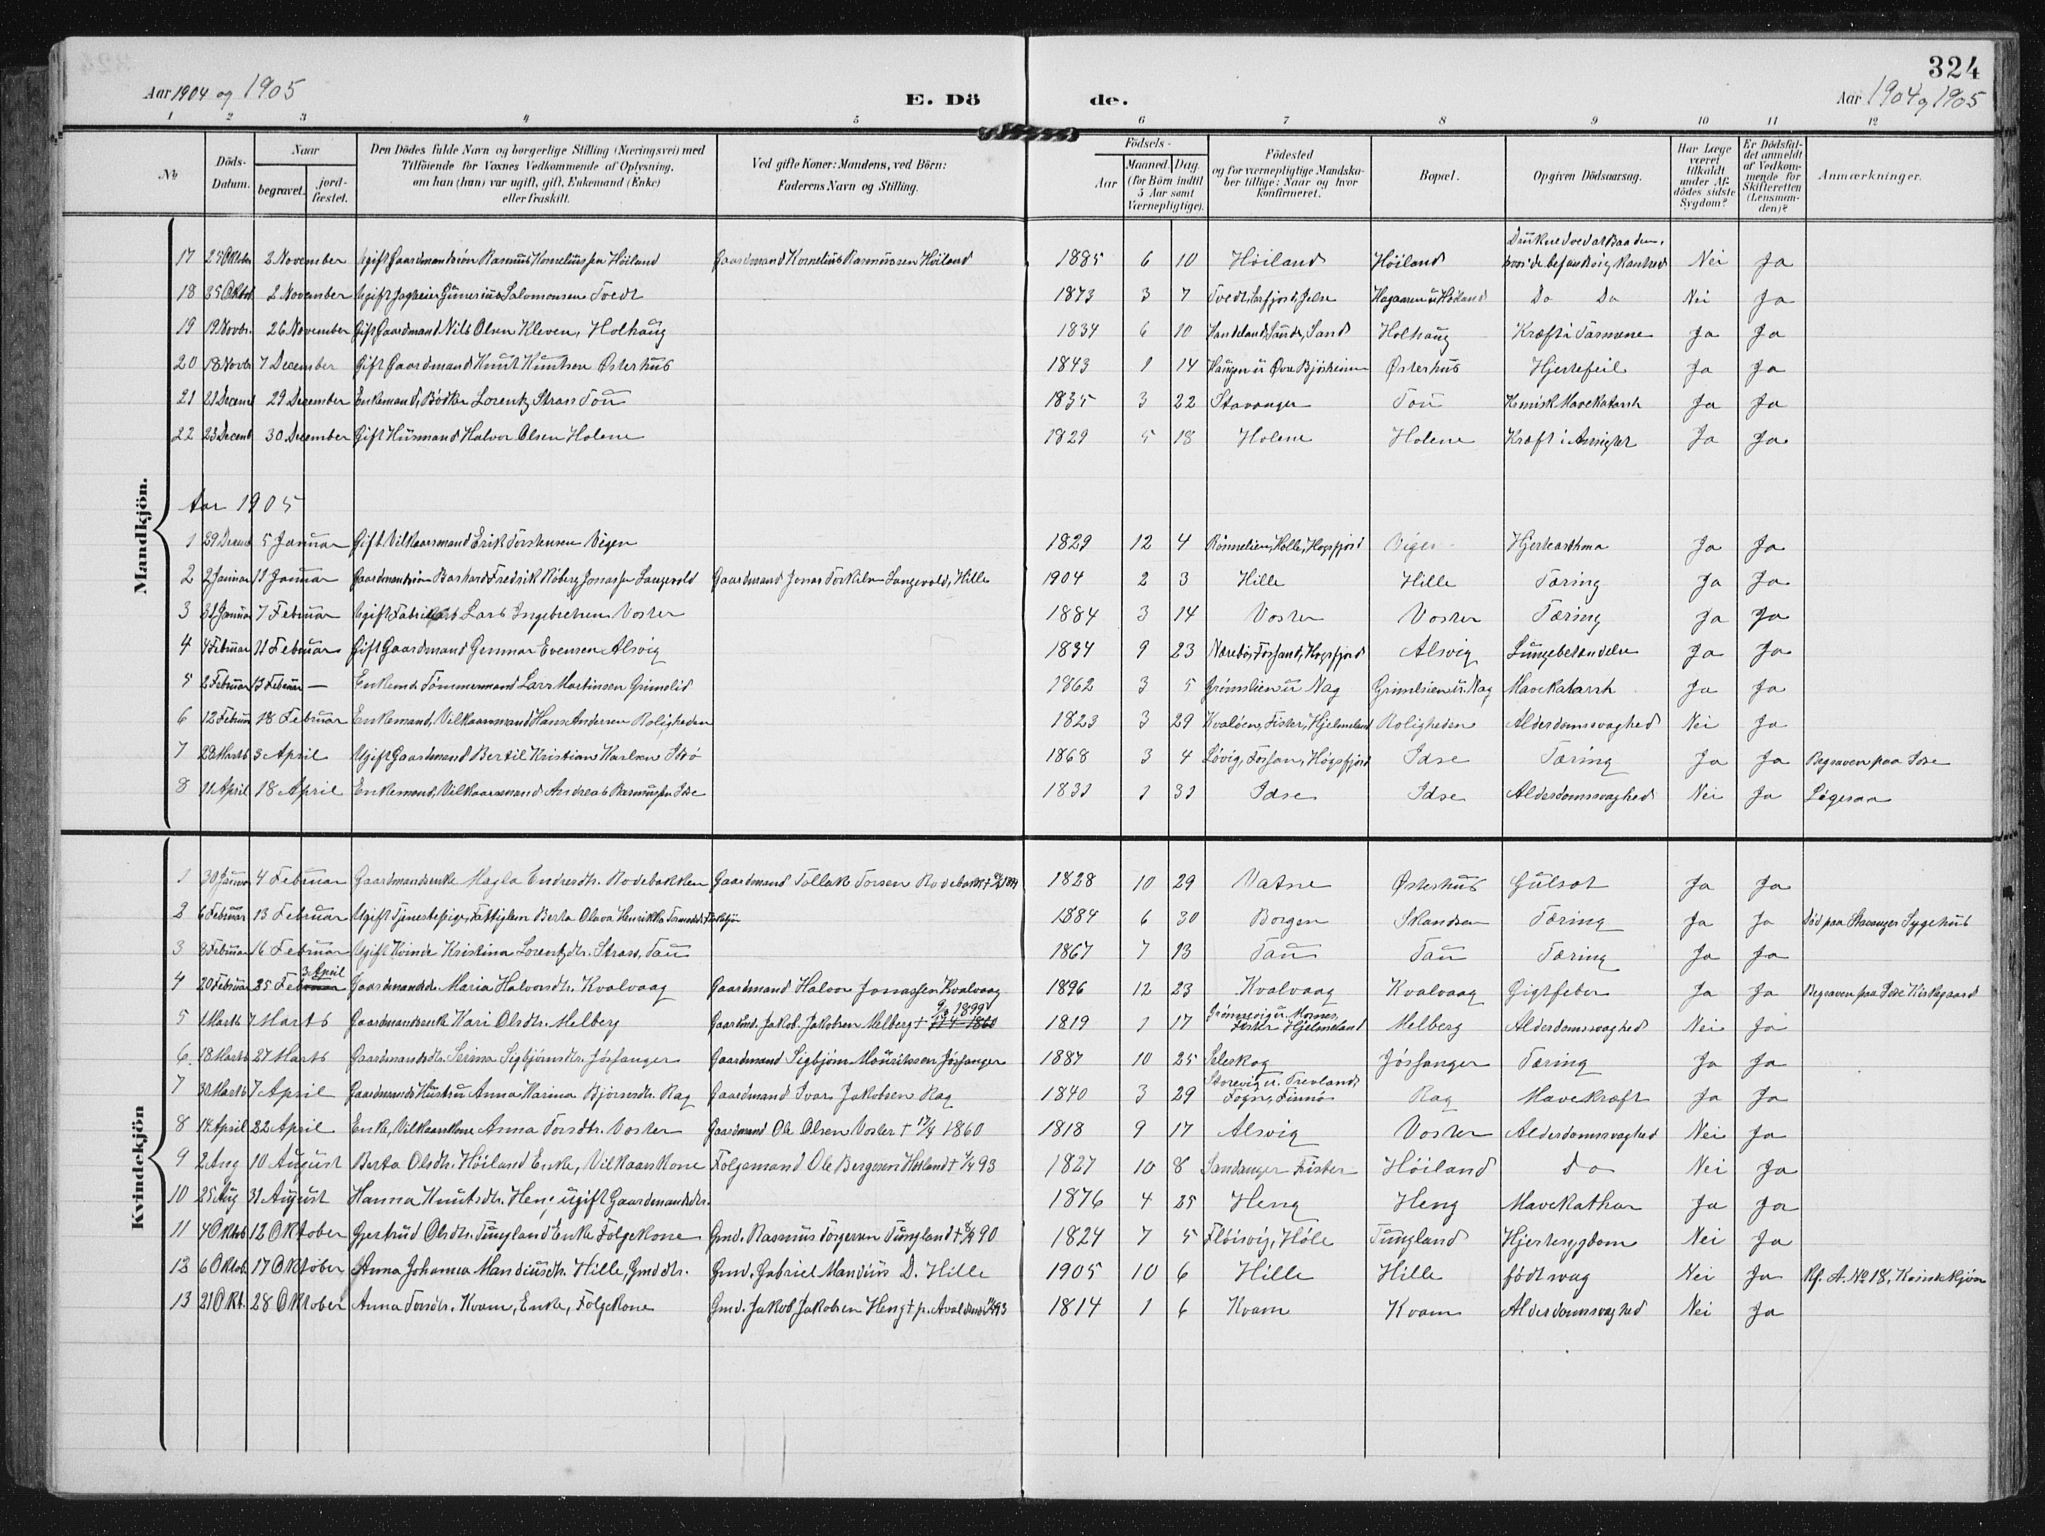 324
Aar 1904 og 1905
E. Dö de.
Aar 1904 og 1905
1 2 3 4 5 6 7 8 9 10 11 12
No
Döds-Datum.
Naar
begravet. jord-fæstet.
Den Dödes fulde Navn og borgerlige Stilling (Næringsvei) med
Tilföiende for Voxnes Vedkommende af Oplysning,
om han (hun) var ugift, gift, Enkemand (Enke)
eller fraskilt.
Ved gifte Koner: Mandens, ved Börn:
Faderens Navn og Stilling.
Födsels-
Aar
Maaned. Dag.
(for Börn indtil
5 Aar samt
Værnepligtige).
Födested
og for værnepligtige Mandska-
ber tillige: Naar og hvor
konfirmeret.
Bopæl.
Opgiven Dödsaarsag.
Har Læge
været
tilkaldt
under Af-
dödes sidste
Sygdom?
Er Dödsfal-
det anmeldt
af Vedkom-
mende for
Skifteretten
(Lensman-
den)?
Anmærkninger.
Mandkjön.
17 25 Oktbr 2 November Ugift Gaardmandssön Rasmus Korneliussen Höiland Gaardmand Kornelius Rasmussen Höiland 1885 6 10 Höiland Höiland Druknedved at Baaden, hvori de befandt sig kantred Nei Ja
18 25 Oktbr 2 November Ugift Gunerius Salomonsen Tvedt 1873 3 7 Tvedt, Jelse Hagaaren u Höiland Do Do Nei Ja
19 19 Novbr. 26 November Gift Gaardmand Nils Olsen Kleven, Holhaug 1834 6 10 Sand Holhaug Kræft i Tarmene Ja Ja
20 18 Novbr 7 December Gift Gaardmand Knut Knutsen Østerhus 1843 1 14 Haugen u Øvre Bjørheim Østerhus Hjertefeil Ja Ja
21 21 Decemb 29 December Enkemand, Bødker Lorentz Strass Tou 1835 3 22 Stavanger Tou Kronisk Mavekatarrh Ja Ja
22 23 Decemb 30 December Gift Husmand Halvor Olsen Holene 1829 5 18 Holene Holene Kræft i Ansigtet Ja Ja
Aar 1905
1 29 Decemb 5 Januar Gift Vilkaarsmand Erik Torstensen Vigen 1829 12 4 Rönnelien, Holle, Høgsfjord Vigen Hjerteasthma Ja Ja
2 2 Januar 11 Januar Gaardmandssön Fredrik Jonassen Langevold Gaardmand Jonas Torkilsen Langevold, Hille 1904 2 3 Hille Hille Tæring Ja Ja
3 31 Januar 7 Februar Ugift Lars Ingebretsen Voster 1884 3 14 Voster Voster Tæring Ja Ja
4 4 Februar 11 Februar Gift Gaardmand Gunnar Evensen Alsvig 1834 9 23 Nærebø, Fossand, Høgsfjord Alsvig Lungebetændelse Ja Ja
5 2 Februar 13 Februar — Enkemd. Tömmermand Lars Martinsen Grimslid 1862 3 5 Grimslien u Nag Grimslien u. Nag Mavekatarrh Ja Ja
6 12 Februar 18 Februar Enkemand, Vilkaarsmand Hans Andersen Roligheden 1823 3 29 Kvalöen, Fister, Hjelmeland Roligheden Alderdomssvaghed Nei Ja
7 29 Marts 3 April Ugift Gaardmand Bertil Kristian Karlsen Idsö 1868 3 4 Lövig, Fossan, Høgsfjord Idse Tæring Ja Ja Begraven paa Idse
8 11 April 18 April Enkemand, Vilkaarsmand Andreas Rasmussen Idse 1831 1 31 Idse Idse Alderdomssvaghed Nei Ja Ligesaa
Kvindekjön
1 30 Januar 4 Februar Gaardmandsenke Magla Endresdtr. Rodebakken Gaardmand Tollak Torsen Rodebakk 1828 10 29 Vatne Østerhus Gulsot Ja Ja
2 6 Februar 13 Februar Ugift Tjenestepige, Fattiglem Berta Olava Henrikka 1884 6 30 Borgen Skandsen Tæring Ja Ja Död paa Stavanger Sygehus
3 8 Februar 16 Februar Ugift Kvinde Kristina Lorentzdtr. Strass, Tau 1867 7 13 Tau Tau Tæring Ja Ja
4 20 Februar 25 Februar 3 April Gaardmandsdtr. Maria Halvorsdtr. Kvalvaag Gaardmand Halvor Jonassen Kvalvaag 1896 12 23 Kvalvaag Kvalvaag Gigtfeber Ja Ja Begraven paa Idse Kirkegaard
5 1 Marts 7 Marts Gaardmandsenke Kari Olsdtr. Melberg Gaardmd. Jakob Jakobsen Melberg † 1899 1860 1819 1 17 Grönnevig u. Mosnes, Fister Hjelmeland Melberg Alderdomssvaghed Nei Ja
6 18 Marts 27 Marts Gaardmandsdtr. Serina Sigbjörnsdtr. Jösfanger Gaardmand Sigbjörn Mouritssen Jösfanger 1887 10 25 Seleskog Jösfanger Tæring Ja Ja
7 30 Marts 7 April Gaardmands Hustru Anna Marina Bjørnsdtr. Rag Gaardmand Ivar Jakobsen Rag 1840 3 29 Storevig u. Trevland, Fogn, Finnö Rag Mavekræft Ja Ja
8 14 April 22 April Enke, Vilkaarskone Anna Torsdtr. Voster Gaardmand Ole Olsen Voster † 17/4 1860 1818 9 17 Alsvig Voster Alderdomssvaghed Nei Ja
9 2 Aug 10 August Berta Olsdtr. Höiland Enke, Vilkaarskone Følgemand Ole Bergesen Høiland † 93 1827 10 8 Sandanger Fister Höiland do Nei Ja
10 25 Aug 31 August Hanna Knutsdtr. Heng ugift Gaardmandsdtr. 1876 4 25 Heng Heng Mavekathar Ja Ja
11 4 Oktob 12 Oktober Gjertrud Olsdtr. Tungland Enke Følgekone Gmd. Rasmus Torgersen Tungland † 90 1824 7 5 Fløisvig, Høle Tungland Hjertesygdom Nei Ja
12 6 Oktob 17 Oktober Anna Johanna Mandiusdtr. Hille, Gmddtr. Gmd. Gabriel Mandius D. Hille 1905 10 6 Hille Hille født svag Nei Ja Kf. A. No 18, Kvindekjön
13 21 Okt. 28 Oktober Anna Torsdtr. Kvam, Enke, Følgekone Gmd. Jakob Jakobsen Heng † 93 1814 1 6 Kvam Kvam Alderdomssvaghed Nei Ja